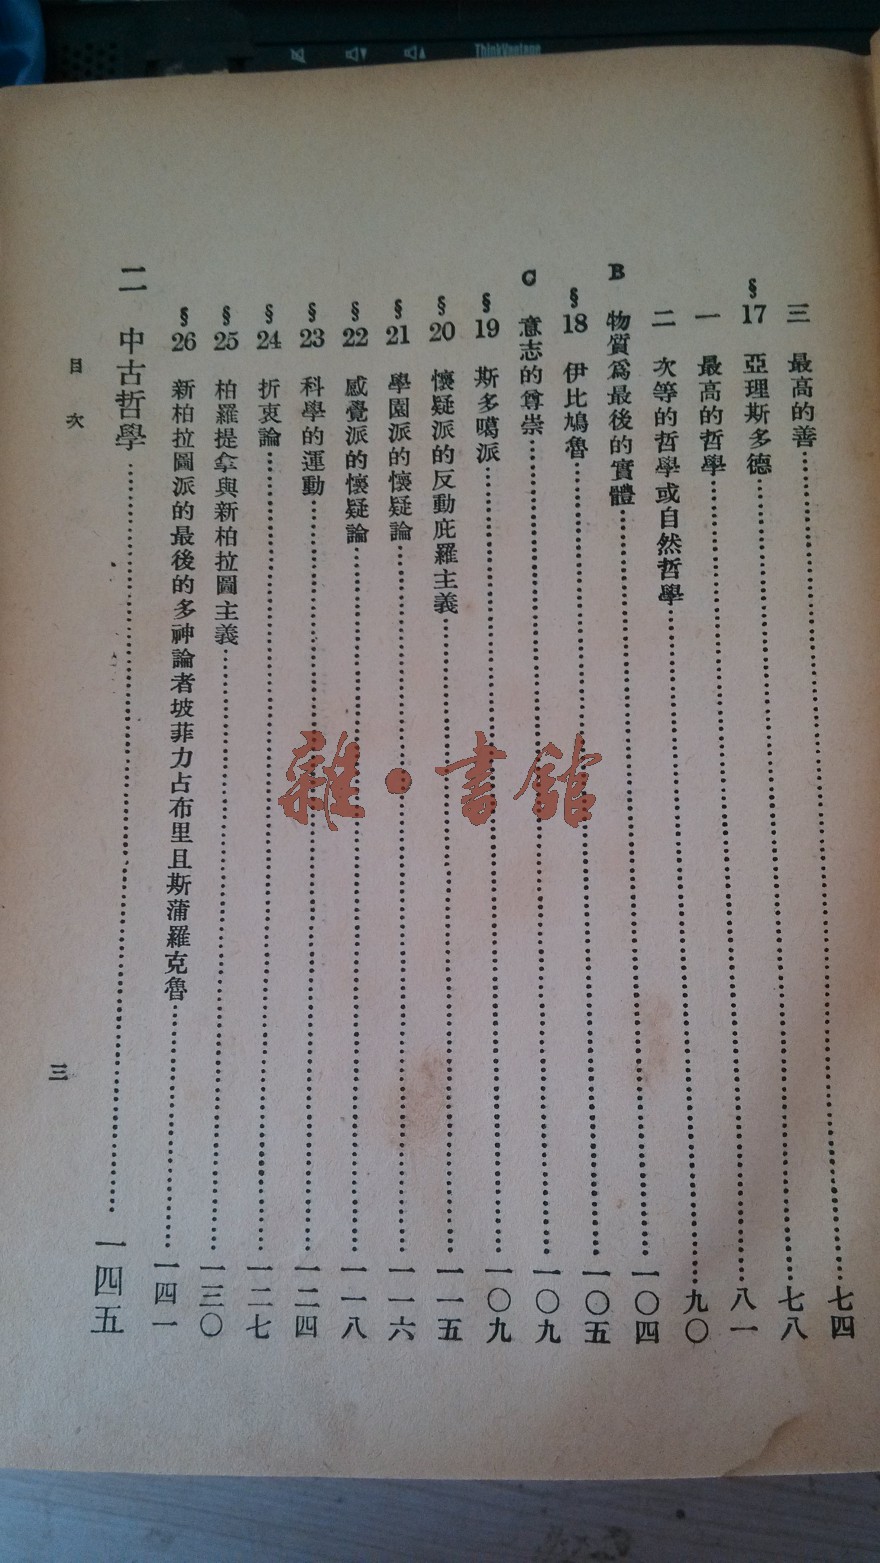 三 最高的善……七四
§17 亞理斯多德……七八
一 最高的哲學……八一
二 次等的哲學或自然哲學……九〇
B 物質爲最後的實體……一〇四
§18 伊比鳩魯……一〇五
C 意志的尊崇……一〇九
§19 斯多噶派……一〇九
§20 懷疑派的反動庇羅主義……一一五
§21 學園派的懷疑論……一一六
§22 感覺派的懷疑論……一一八
§23 科學的運動……一二四
§24 折衷論……一二七
§25 柏羅提拿與新柏拉圖主義……一三〇
§26 新柏拉圖派的最後的多神論者坡菲力占布里且斯蒲羅克魯……一四一
二 中古哲學……一四五
目次
三
雜·書館
ThinkVantage